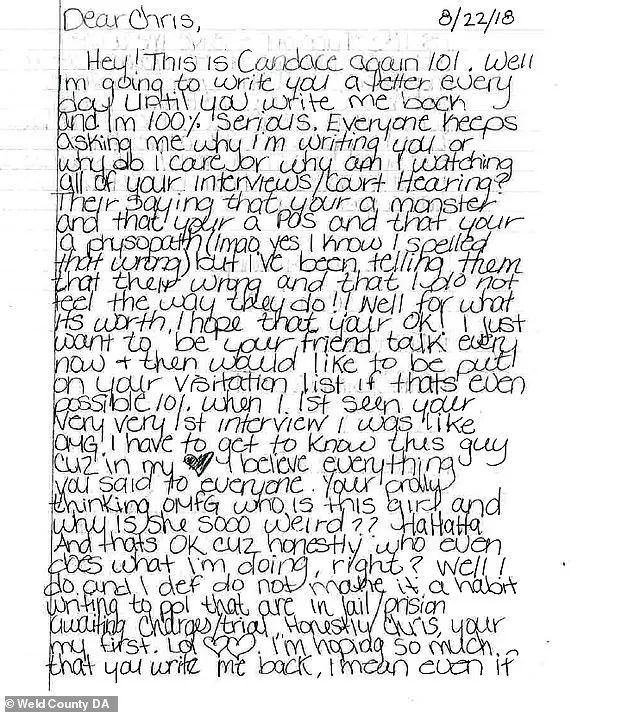 Dear Chris, 8/22/18
Hey! This is Candace again lol. Well
Im going to write you a letter every
day until you write me back
and Im 100% serious. Everyone keeps
asking me why I'm writing you or
why do I care or why am I watching
all of your interviews/court Hearing?
Their saying that your a monster
and that your a POS and that your
a physopath (lmao yes I know I spelled
that wrong) but I've been telling them
that their wrong and that I do not
feel the way they do!! Well for what
its worth, I hope that your OK! I just
want to be your friend talk every
now + then would like to be put
on your visitation list if thats even
possible lol. when I 1st seen your
very very 1st interview I was like
OMG! I have to get to know this guy
cuz in my ♥ I believe everything
you said to everyone. Your prolly
thinking OMFG who is this girl and
why is she sooo weird?? HaHaHa
And thats OK cuz honestly who even
does what I'm doing, right? Well I
do and I def do not make it a habit
writing to ppl that are in jail/prision
awaiting charges/trial. Honestly Chris, your
my first. Lol ♡♡. I'm hoping so much
that you write me back, I mean even if
© Weld County DA